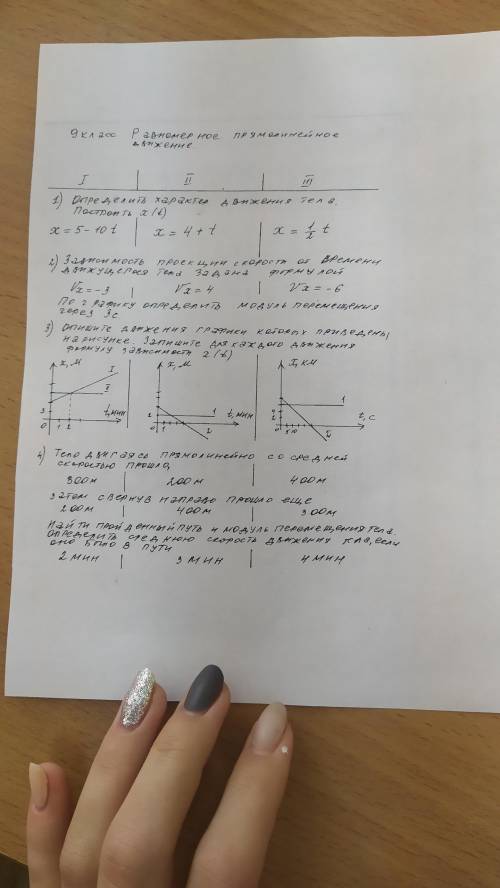 9 класс Равномерное прямолинейное
движение
I II III
1) Определить характер движения тела.
Построить x(t)
x = 5 - 10 t x = 4 + t x = 1/2 t
2) Зависимость проекции скорости от времени
движущегося тела задана формулой
Vx = -3 Vx = 4 Vx = -6
По графику определить модуль перемещения
через 3с
3) Опишите движения графики которых приведены
на рисунке. Запишите для каждого движения
формулу зависимости x(t)
x, м x, м x, км
I II 3 0 1 2 t, мин
2 0 1 2 t, мин
1 0 t, с
4) Тело двигаясь прямолинейно со средней
скоростью прошло,
300м 200м 400м
затем свернув направо прошло еще
200м 400м 300м
Найти пройденный путь и модуль перемещения тела.
Определить среднюю скорость движения тела, если
оно было в пути
2 мин 3 мин 4 мин